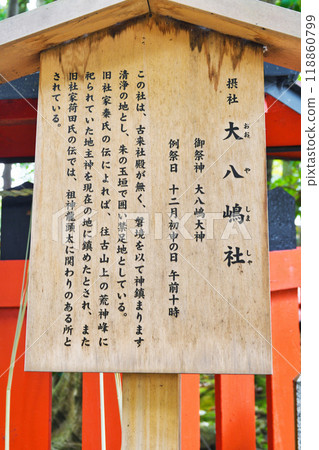 摂社 大八嶋社
おおやしましゃ
御祭神 大八嶋大神
例祭日 十二月初申の日 午前十時
この社は、古来社殿が無く、磐境を以て神鎮まります
清浄の地とし、朱の玉垣で囲い禁足地としている。
旧社家秦氏の伝によれば、往古山上の荒神峰に
祀られていた地主神を現在の地に鎮めたとされ、また
旧社家荷田氏の伝では、祖神龍頭太に関わりのある所と
されている。
PIXTA
118860799